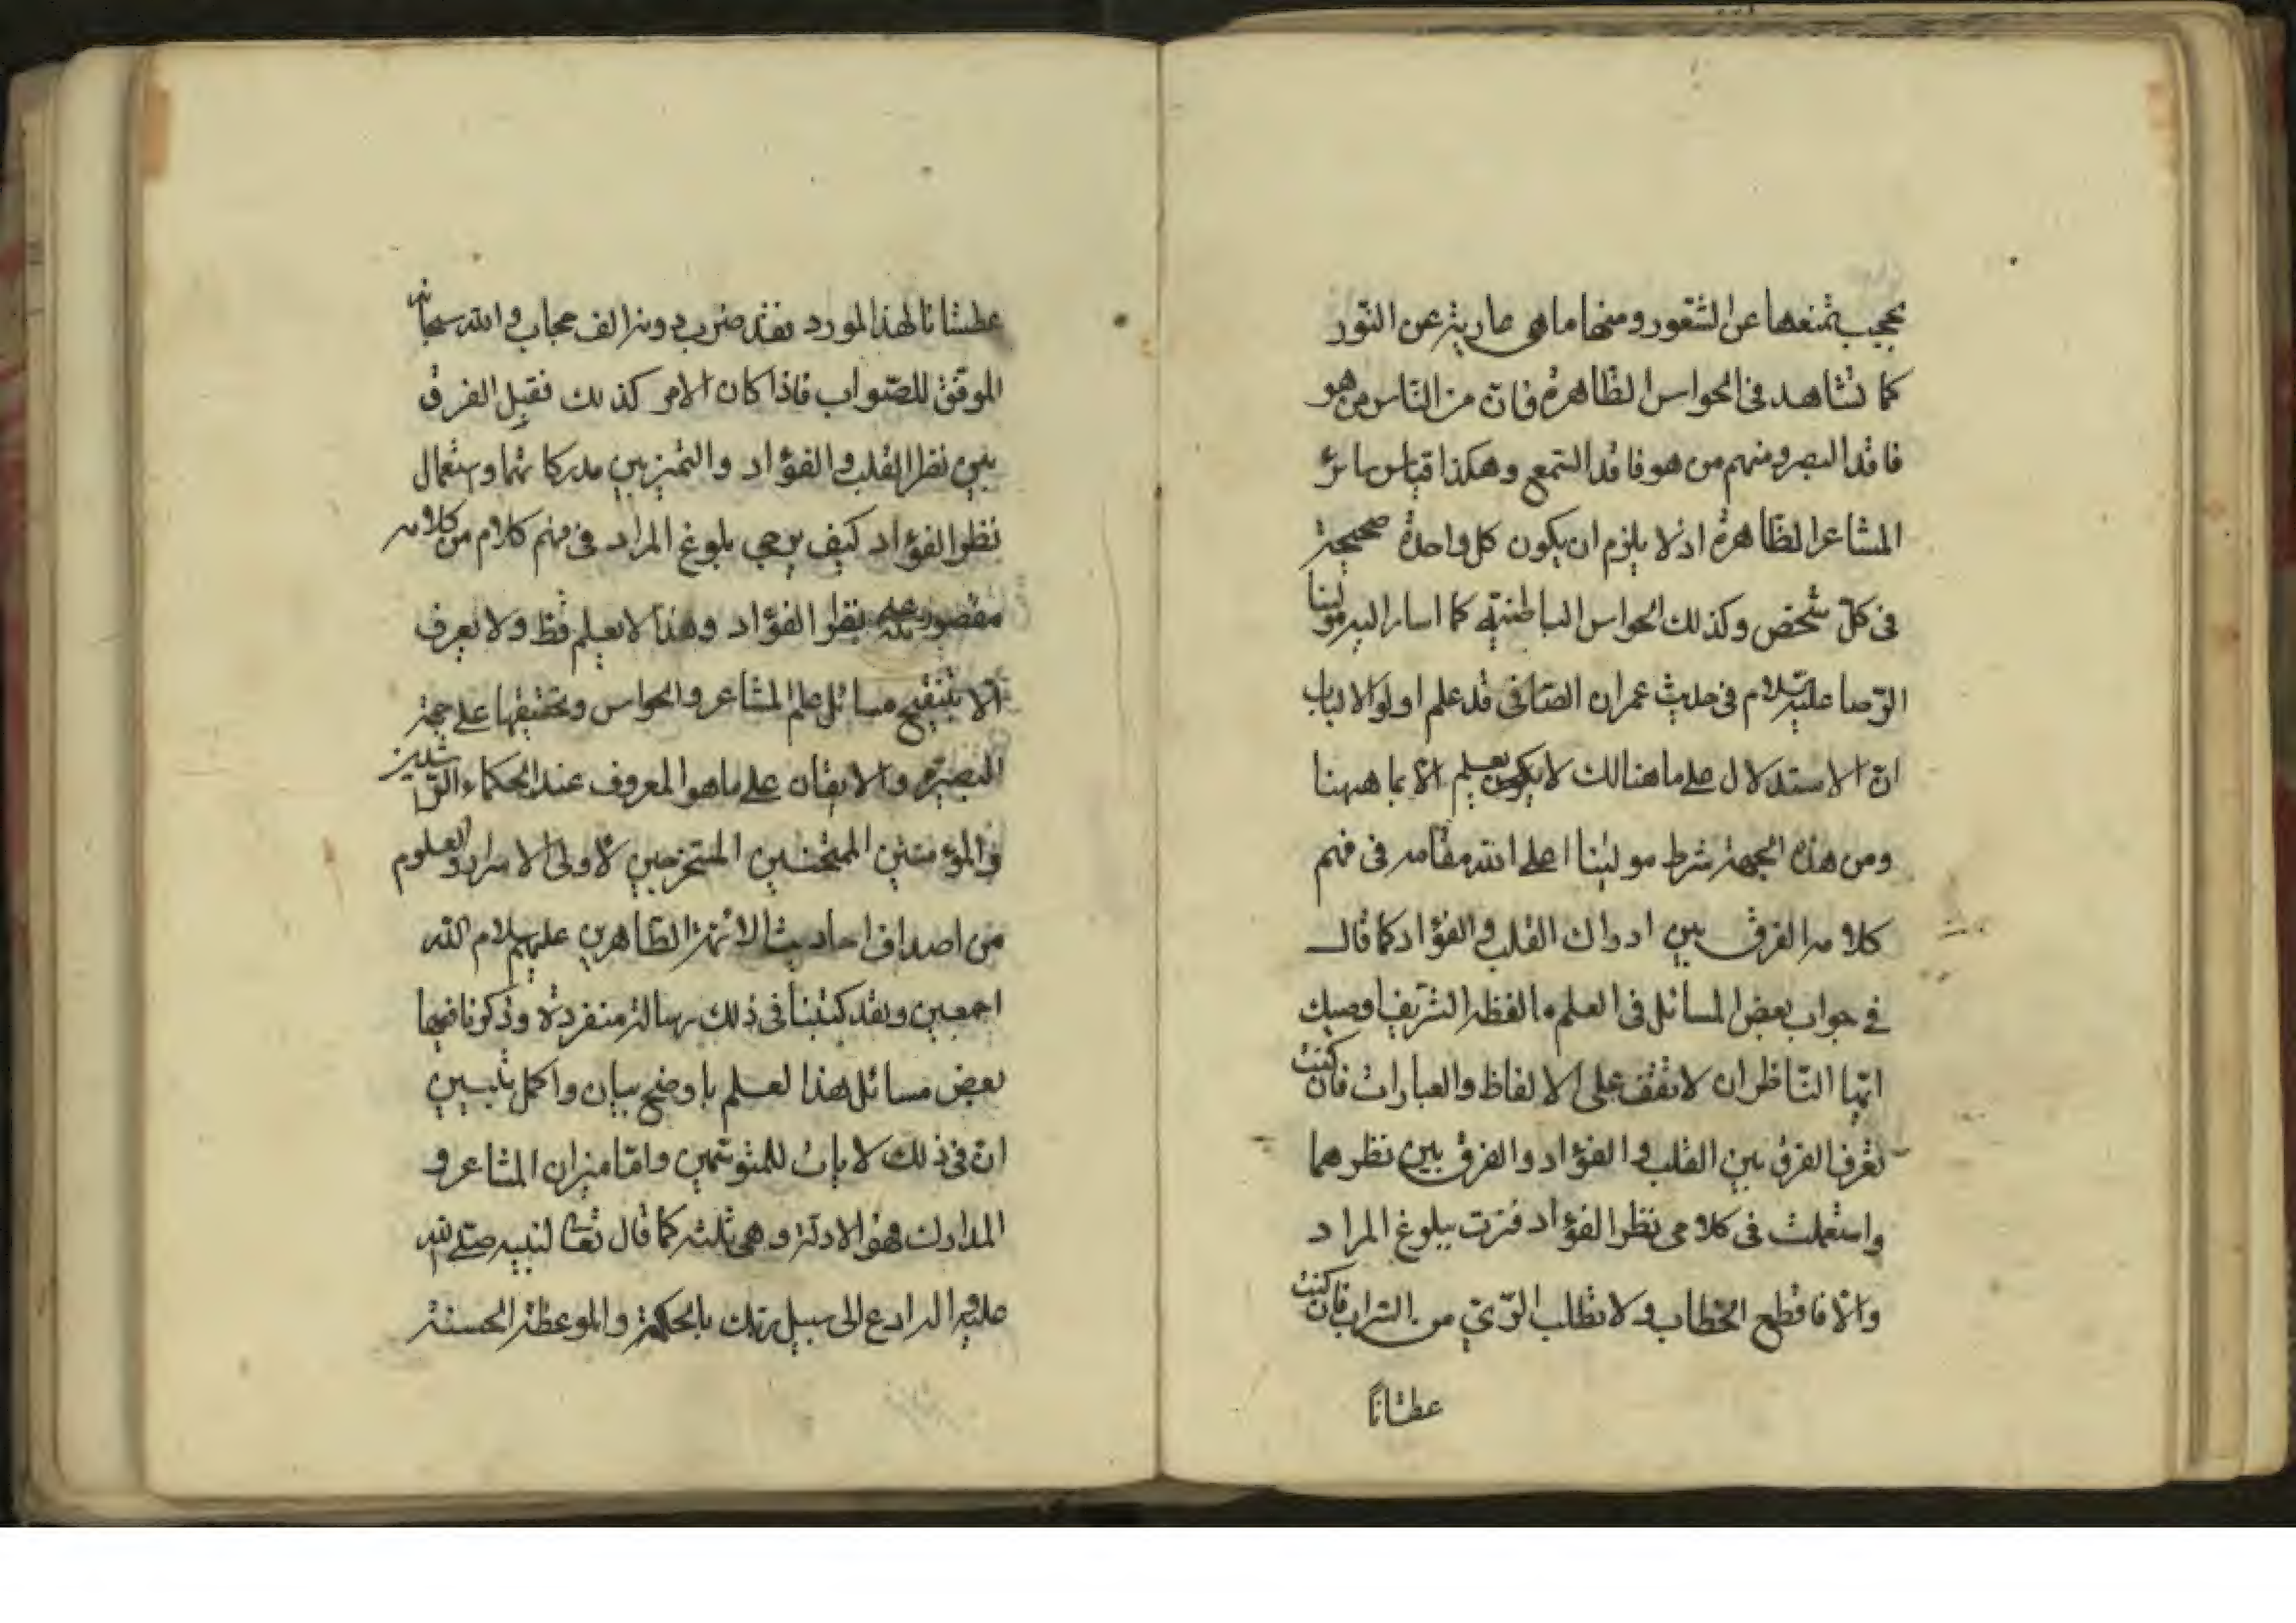 بحجب تمنعها عن الشعور ومنها ما هى عارية عن النور
كما نشاهد فى الحواس الظاهرة فان من الناس من هو
فاقد البصر ومنهم من هو فاقد السمع وهكذا قياس سائر
المشاعر الظاهرة اذ لا يلزم ان يكون كل واحدة صحيحة
فى كل شخص وكذلك الحواس الباطنية كما اشار اليه مولينا
الرضا عليه السلام فى حديث عمران الصابى قد علم اولوا الالباب
ان الاستدلال على ما هنالك لا يعلم الا بما هيهنا
ومن هذه الجهة شرط مولينا اعلى الله مقامه فى فهم
كلامه الفرق بين ادراك القلب و الفؤاد كما قال
فى جواب بعض المسائل فى العلم ما لفظه الشريف اوصيك
ايها الناظر ان لا تقف على الالفاظ والعبارات فان كنت
تعرف الفرق بين القلب و الفؤاد والفرق بين نظرهما
واستعملت فى كلامى نظر الفؤاد فزت ببلوغ المراد
والا فاقطع الخطاب ولا تطلب الرى من السراب فان كنت
عطشاناً
عطشانا لهذا المورد فقد ضرب دونه الف حجاب والله سبحانه
الموفق للصواب فاذا كان الامر كذلك فقبل الفرق
بين نظر القلب والفؤاد والتميز بين مدركاتهما واستعمال
نظر الفؤاد كيف يرجى بلوغ المراد فى فهم كلام من كلامه
مقصور على نظر الفؤاد وهذا لا يعلم قط ولا يعرف
الا بتنقيح مسائل علم المشاعر والحواس وتحقيقها على جهة
البصيرة والايقان على ما هو المعروف عند الحكماء الراشدين
والمؤمنين الممتحنين المستخرجين لاولى الاسرار والعلوم
من اصداف احاديث الائمة الطاهرين عليهم سلام الله
اجمعين ولقد كتبنا فى ذلك رسالة منفردة وذكرنا فيها
بعض مسائل هذا العلم باوضح بيان واكمل تبيين
ان فى ذلك لايات للمتوسمين واما ميزان المشاعر و
المدارك فهو الادلة وهى ثلثه كما قال تعالى لنبيه صلى الله
عليه واله ادع الى سبيل ربك بالحكمة والموعظة الحسنة